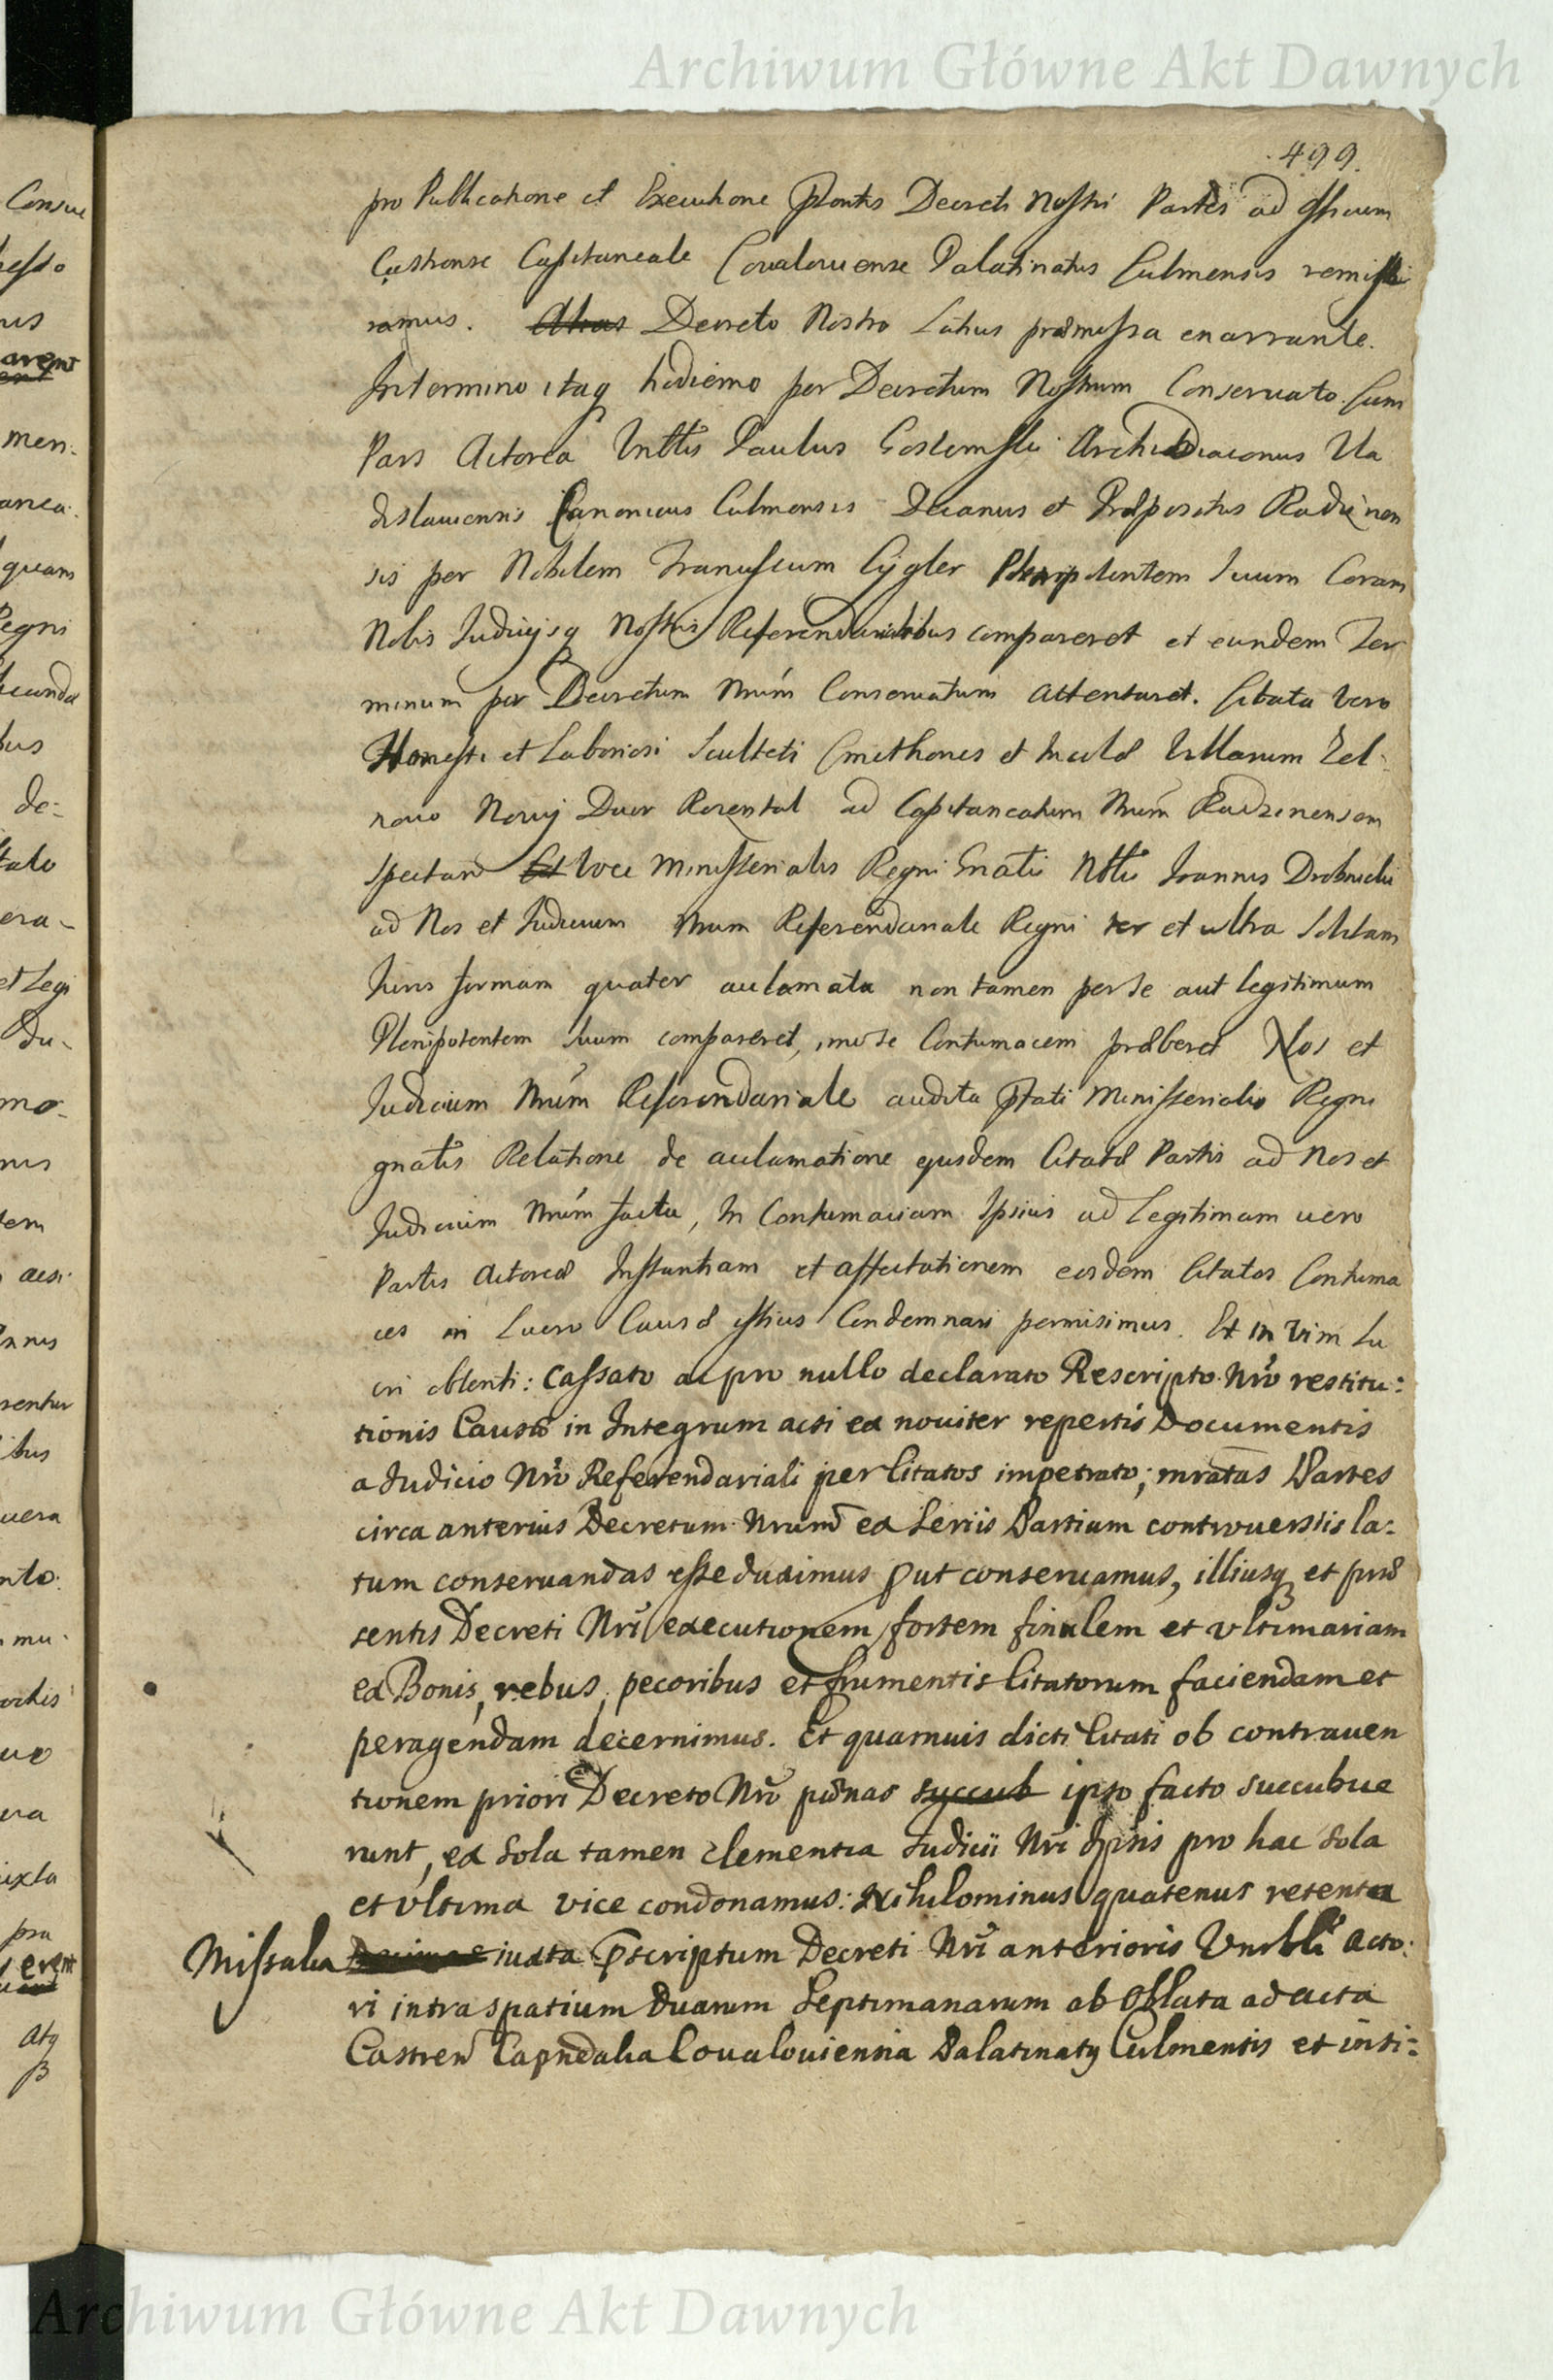 Archiwum Główne Akt Dawnych
499.
pro Publicatione et Executione Pntis Decreti Nostri Partes ad Officium
Castrense Capitaneale Covaloviense Palatinatus Culmensis remisse
ramus. Alias Decreto Nostro Latius præmissa enarrante.
In termino itaq hodierno per Decretum Nostrum Conservato. Cum
Pars Actorea Vnblis Paulus Archidiaconus Vla
dislaviensis Canonicus Culmensis Decanus et Præpositus Radzinen
sis per Nobilem Franciscum Cygler Plenipotentem Suum Coram
Nobis Iudicijsq Nostris Referendarialibus compareret et eundem Ter
minum per Decretum Nrum Conservatum attentaret. Citata vero
Honesti et Laboriosi Sculteti Cmethones et Incolæ Villarum Zel
nowo Nowy Dwor Rozental ad Capitaneatum Nrum Radzinensem
spectan voce Ministerialis Regni Gnalis Nblis Ioannis
ad Nos et Iudicium Nrum Referendariale Regni ter et ultra Solitam
Iuris formam quater acclamata non tamen per se aut legitimum
Plenipotentem Suum compareret, imo se Contumacem præberet Nos et
Iudicium Nrum Referendariale audita Pfati Ministerialis Regni
gnalis Relatione de acclamatione ejusdem Citatæ Partis ad Nos et
Iudicium Nrum facta, In Contumaciam Ipsius ad Legitimam vero
Partis Actoreæ Instantiam et affectationem eosdem Citatos Contuma
ces in Lucro Causæ istius Condemnari permisimus. Et in vim Lu
cri obtenti: Cassato ac pro nullo declarato Rescripto Nro restitu:
tionis Causæ in Integrum acsi ex noviter repertis Documentis
a Iudicio Nro Referendariali per Citatos impetrato; mratas Partes
circa anterius Decretum Nrum ex Seriis Partium controversiis la:
tum conservandas esse duximus Put conservamus, illiusq et præ
sentis Decreti Nri executionem fortem finalem et vltimariam
ex Bonis, rebus, pecoribus et frumentis Citatorum faciendam et
peragendam decernimus. Et quamuis dicti Citati ob contraven
tionem priori Decreto Nro pœnas succub ipso facto succubue
runt, ex Sola tamen clementia Iudicii Nri Ipsis pro hac Sola
et vltima vice condonamus: Nihilominus quatenus retenta
Missalia iuxta Pscriptum Decreti Nri anterioris Vnrbli Acto:
ri intra spatium Duarum Septimanarum ab Oblata ad acta
Castren Capnealia Covaloviensia Palatinatq Culmensis et insi:
Archiwum Główne Akt Dawnych